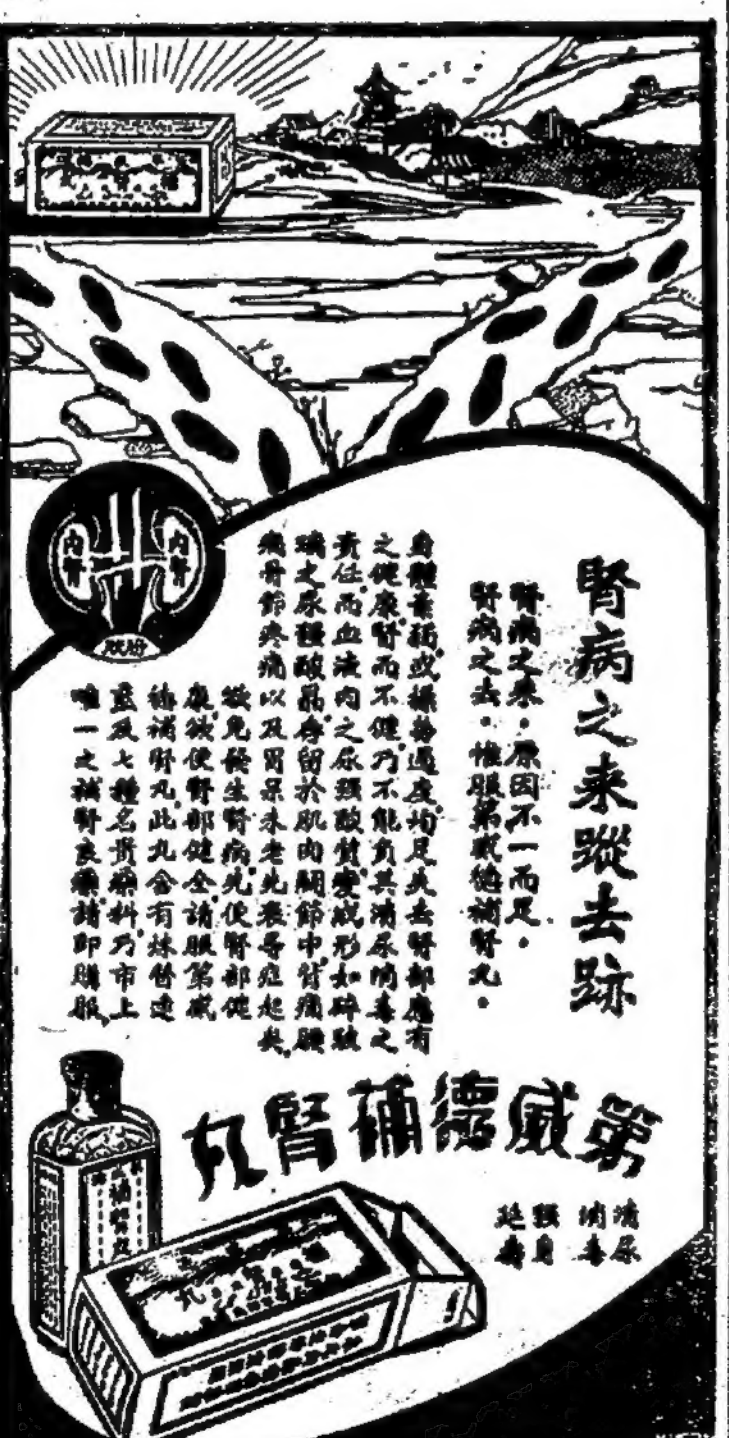 腎病之來蹤去跡
腎病之來。原因不一而足。
腎病之去。惟服第威德補腎丸。
身體素弱或操勞過度均足失去腎部應有
之健康腎而不健乃不能負其清尿消毒之
責任而血液內之尿强酸質變成形如碎玻
璃之尿强酸晶存留於肌肉關節中背痛腰
痛骨節疼痛以及胃呆未老先衰等症起矣
欲免發生腎病先使腎部健
康欲使腎部健全請服第威
德補腎丸此丸含有煉替連
藍及七種名貴藥料乃市上
唯一之補腎良藥請即購服
內腎
內腎
膀胱
第威德補腎丸
清尿
消毒
强身
延壽
補腎丸